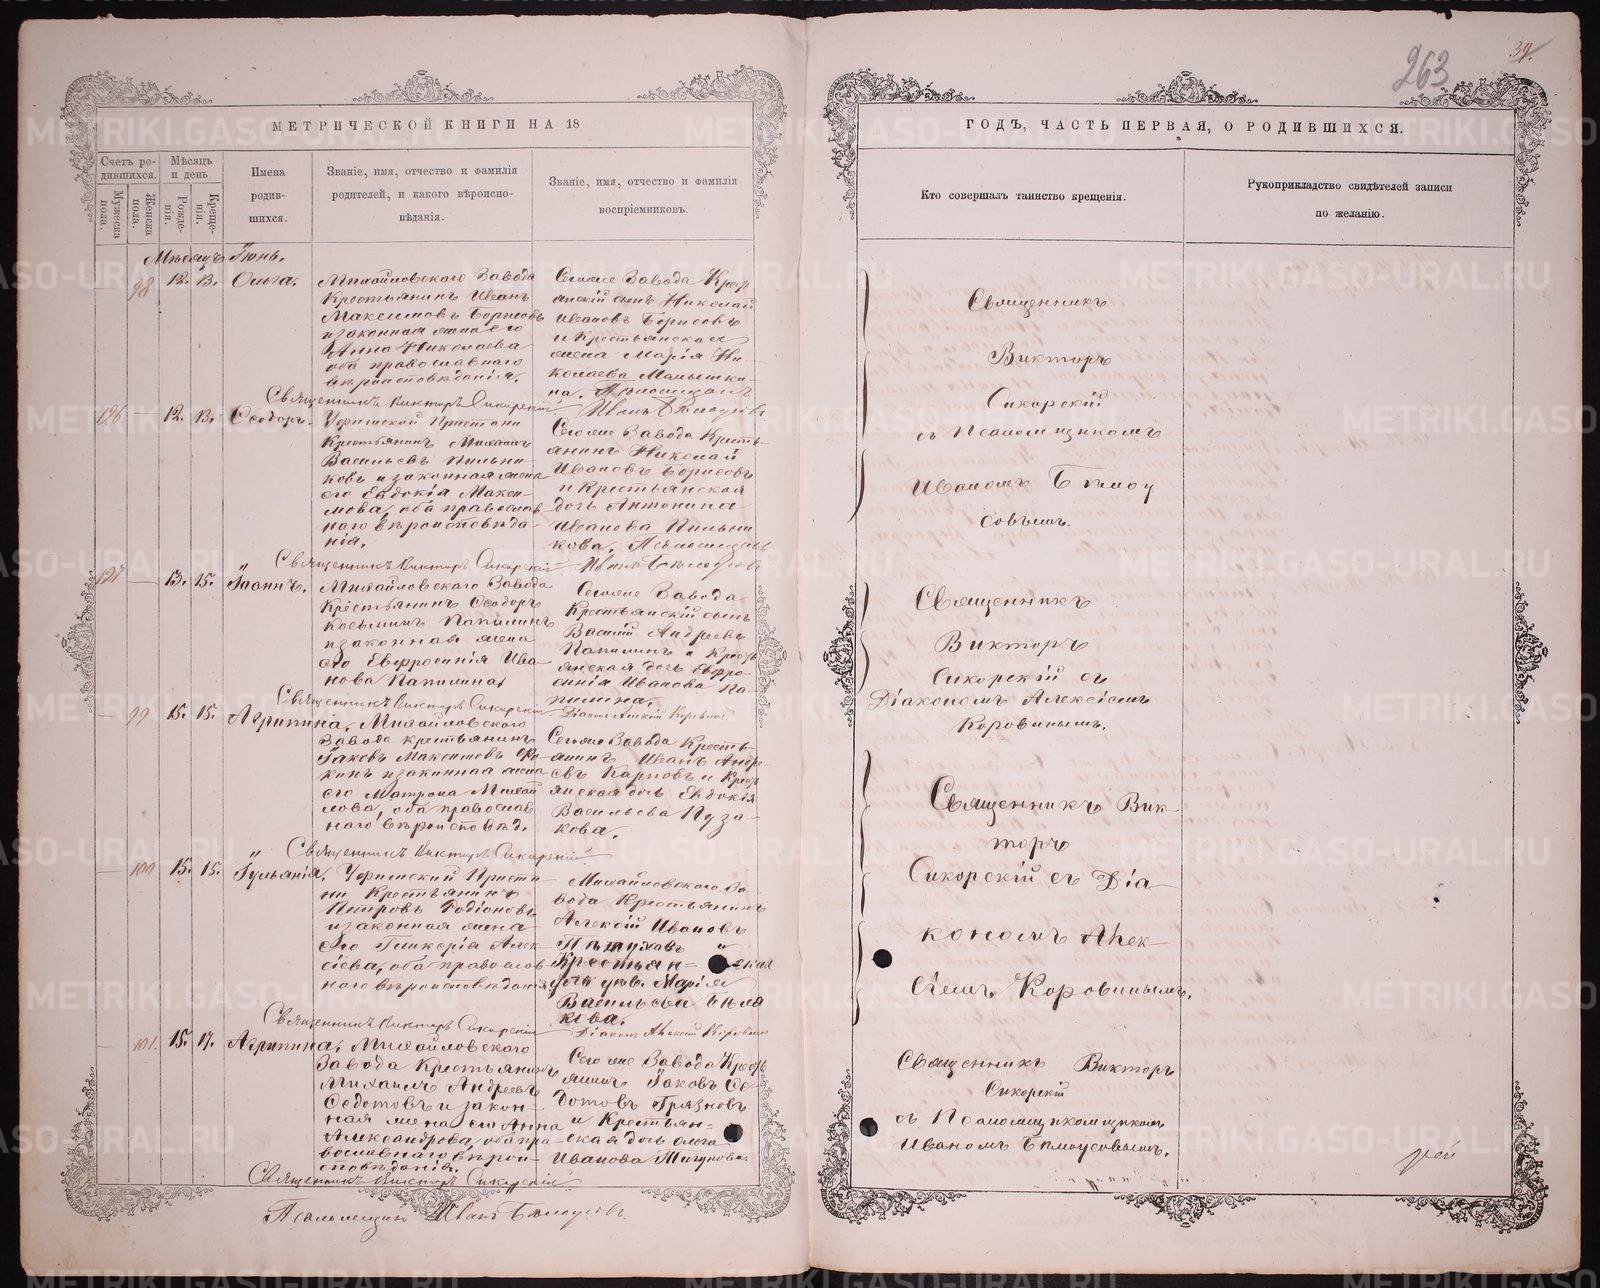 263
39.
МЕТРИЧЕСКОЙ КНИГИ НА 18
Счетъ ро-
дившихся.
Мужеска
пола.
Женска
пола.
Мѣсяцъ
и день
Рожде-
нія.
Креще-
нія.
Имена
родив-
шихся.
Званіе, имя, отчество и фамилія
родителей, и какого вѣроиспо-
вѣданія.
Званіе, имя, отчество и фамилія
воспріемниковъ.
Мѣсяцъ Іюнь.
98 12. 13. Ольга.
Михайловскаго Завода
Крестьянинъ Иванъ
Максимовъ Борисовъ
и законная жена его
Анна Николаева
оба православнаго
вѣроисповѣданія.
Сегоже Завода Крест
янскій сынъ Николай
Ивановъ Борисовъ
и Крестьянская
жена Марія Ни-
колаева Малышки-
на. Псаломщикъ
Священникъ Викторъ Сикорскій
Иванъ Бѣлоусовъ
126 — 12. 13. Ѳеодоръ.
Уфимской Пристани
Крестьянинъ Михаилъ
Васильевъ Пильни-
ковъ и законная жена
его Евдокія Макси-
мова, оба православ
наго вѣроисповѣда-
нія.
Сегоже Завода Кресть-
янинъ Николай
Ивановъ Борисовъ
и Крестьянская
дочь Антонина
Иванова Пильни
кова. Псаломщикъ
Священникъ Викторъ Сикорскій
Иванъ Бѣлоусовъ
127 — 13. 15. Іоаннъ.
Михайловскаго Завода
Крестьянинъ Ѳеодоръ
Козьминъ Папилинъ
и законная жена
его Евфросинія Ива-
нова Папилина,
Сегоже Завода
Крестьянскій сынъ
Василій Андреевъ
Папилинъ и Крест
янская дочь Евфро-
синія Иванова Па-
пилина.
Священникъ Викторъ Сикорскій
Діаконъ Алексій Коровинъ
— 99 15. 15. Агрипина,
Михайловскаго
Завода крестьянинъ
Іаковъ Максимовъ
кинъ и законная жена
его Матрона Михай
лова, оба православ
наго вѣроисповѣд.
Сегоже Завода Кресть-
янинъ Иванъ Андре-
евъ Карповъ и Крест
янская дочь Евдокія
Васильева Пуза-
кова.
Священникъ Викторъ Сикорскій
— 100 15. 15. Іульянія,
Уфимской Приста
ни Крестьянинъ
Петровъ Родіоновъ
и законная жена
его Гликерія Алек-
сіева, оба православ
наго вѣроисповѣданія
Михайловскаго За-
вода Крестьянинъ
Алексій Ивановъ
Пѣтуховъ и
Крестьян= ская
дочь дѣв. Марія
Васильева Бѣля
кова.
Священникъ Викторъ Сикорскій
Діаконъ Алексій Коровинъ
— 101. 15. 17. Агрипина,
Михайловскаго
Завода Крестьянинъ
Михаилъ Андреевъ
Ѳедотовъ и закон-
ная жена его Анна
Александрова, оба пра
вославнаго вѣрои-
споведанія.
Сегоже Завода Крест
янинъ Іаковъ Ѳе-
дотовъ Грязновъ
и Крестьян=
ская дочь Ольга
Иванова Мигунова.
Священникъ Викторъ Сикорскій
Псаломщикъ Иванъ Бѣлоусовъ.
ГОДЪ, ЧАСТЬ ПЕРВАЯ, О РОДИВШИХСЯ.
Кто совершалъ таинство крещенія.
Рукоприкладство свидѣтелей записи
по желанію.
Священникъ
Викторъ
Сикорскій
съ Псаломщикомъ
Иваномъ Бѣлоу
совымъ.
Священникъ
Викторъ
Сикорскій съ
Діакономъ Алексіемъ
Коровинымъ.
Священникъ Вик-
торъ
Сикорскій съ Діа-
кономъ Алек-
сіемъ Коровинымъ.
Священникъ Викторъ
Сикорскій
съ Псаломщикомщикомъ
Иваномъ Бѣлоусовымъ.
METRIKI.GASO-URAL.RU